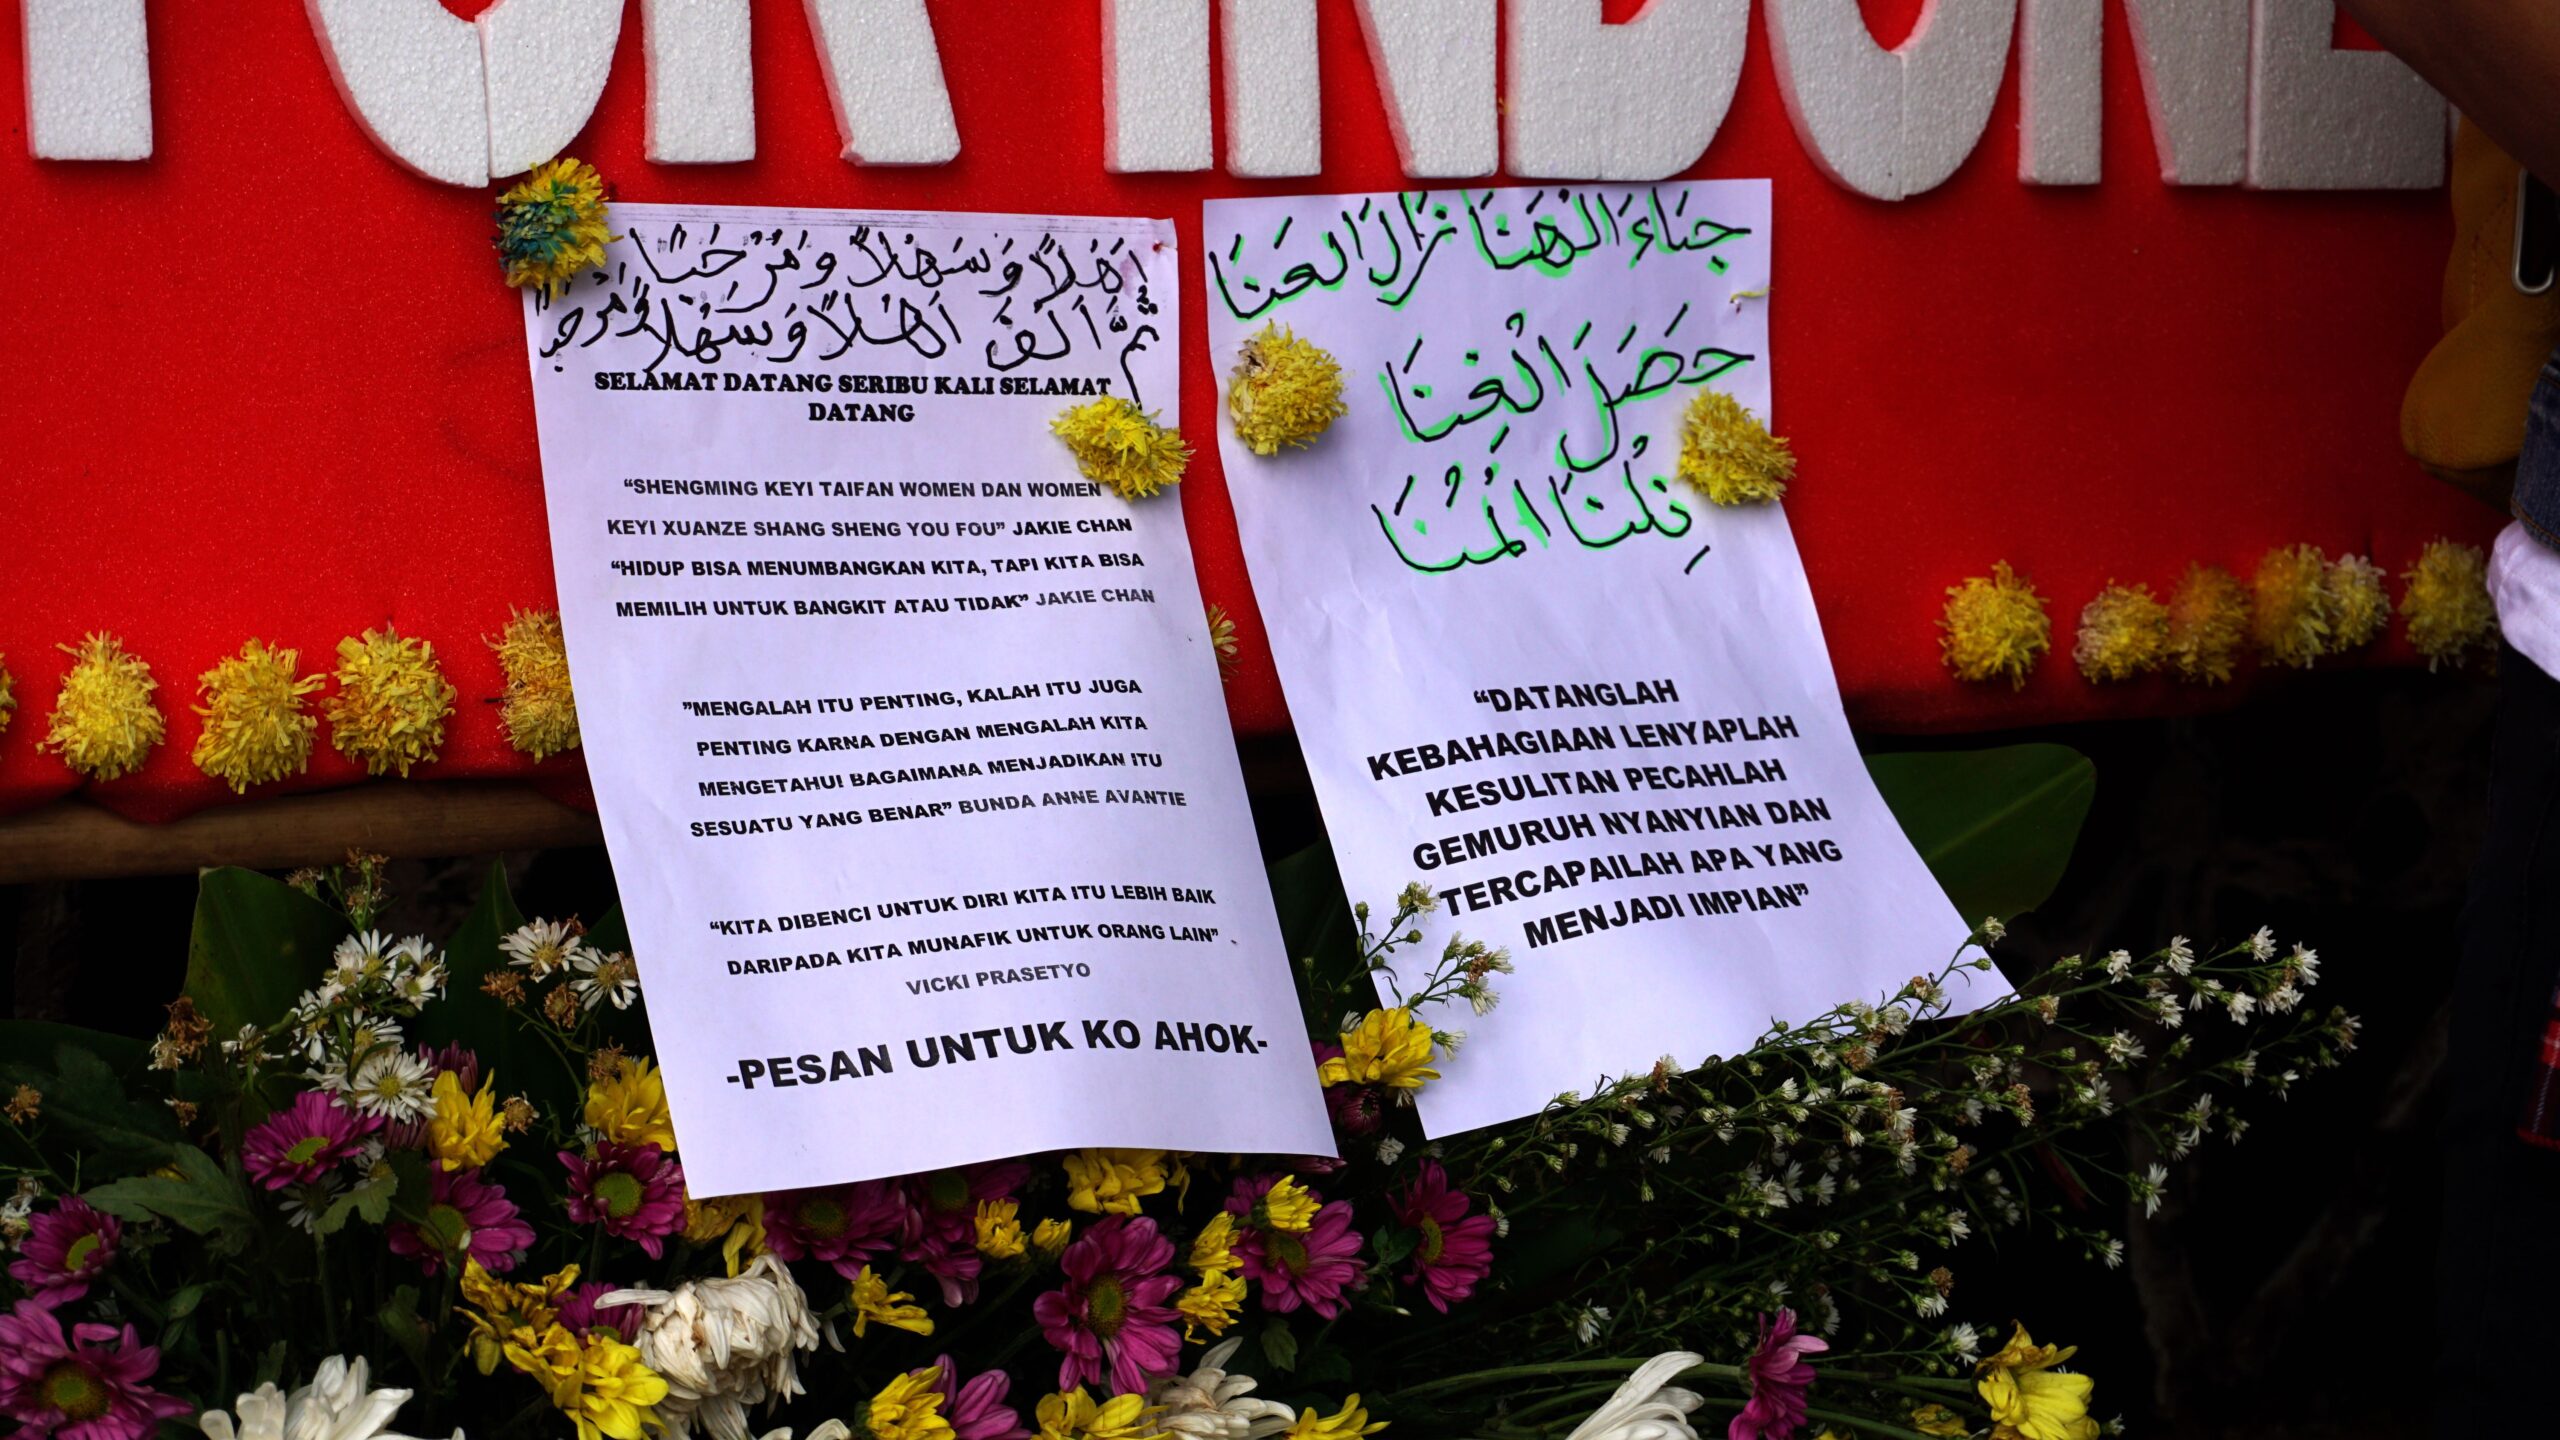 FOR INDONE
اَهْلاً وَسَهْلاً وَمَرْحَبًا
ثُمَّ اَلَفَ اَهْلاً وَسَهْلاً وَمَرْحَبًا
SELAMAT DATANG SERIBU KALI SELAMAT
DATANG
“SHENGMING KEYI TAIFAN WOMEN DAN WOMEN
KEYI XUANZE SHANG SHENG YOU FOU” JAKIE CHAN
“HIDUP BISA MENUMBANGKAN KITA, TAPI KITA BISA
MEMILIH UNTUK BANGKIT ATAU TIDAK” JAKIE CHAN
”MENGALAH ITU PENTING, KALAH ITU JUGA
PENTING KARNA DENGAN MENGALAH KITA
MENGETAHUI BAGAIMANA MENJADIKAN ITU
SESUATU YANG BENAR” BUNDA ANNE AVANTIE
“KITA DIBENCI UNTUK DIRI KITA ITU LEBIH BAIK
DARIPADA KITA MUNAFIK UNTUK ORANG LAIN”
VICKI PRASETYO
-PESAN UNTUK KO AHOK-
جَاءَ الْهَنَا زَالَ الْعَنَا
حَصَلَ الْغِنَا
نِلْنَا الْمُنَا
“DATANGLAH
KEBAHAGIAAN LENYAPLAH
KESULITAN PECAHLAH
GEMURUH NYANYIAN DAN
TERCAPAILAH APA YANG
MENJADI IMPIAN”